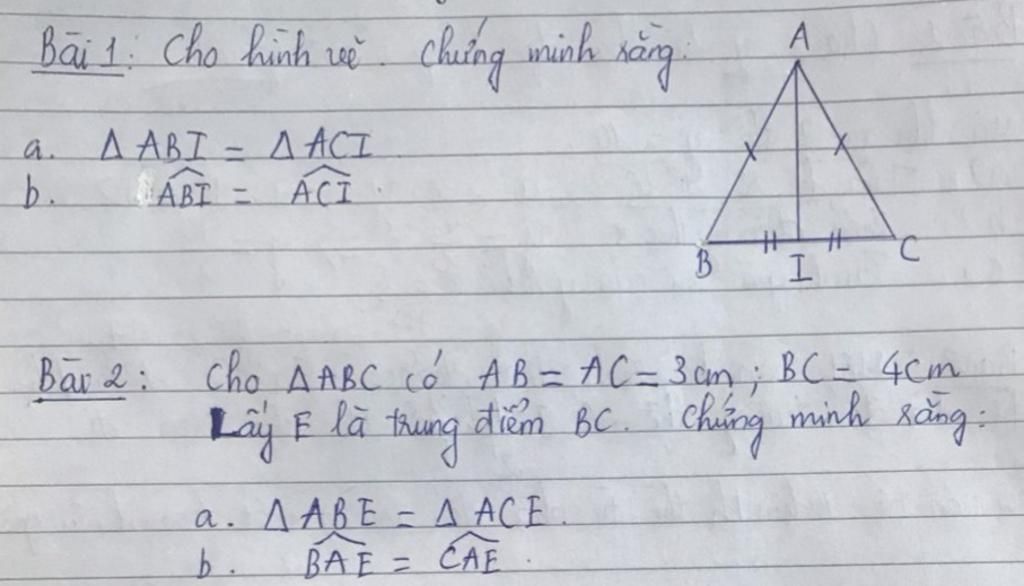 Bài 1: Cho hình vẽ. Chứng minh rằng:
A
a. ΔABI = ΔACI
b. \widehat{ABI} = \widehat{ACI}.
B I C
Bài 2: Cho ΔABC có AB = AC = 3cm; BC = 4cm
Lấy E là trung điểm BC. Chứng minh rằng:
a. ΔABE = ΔACE.
b. \widehat{BAE} = \widehat{CAE}.